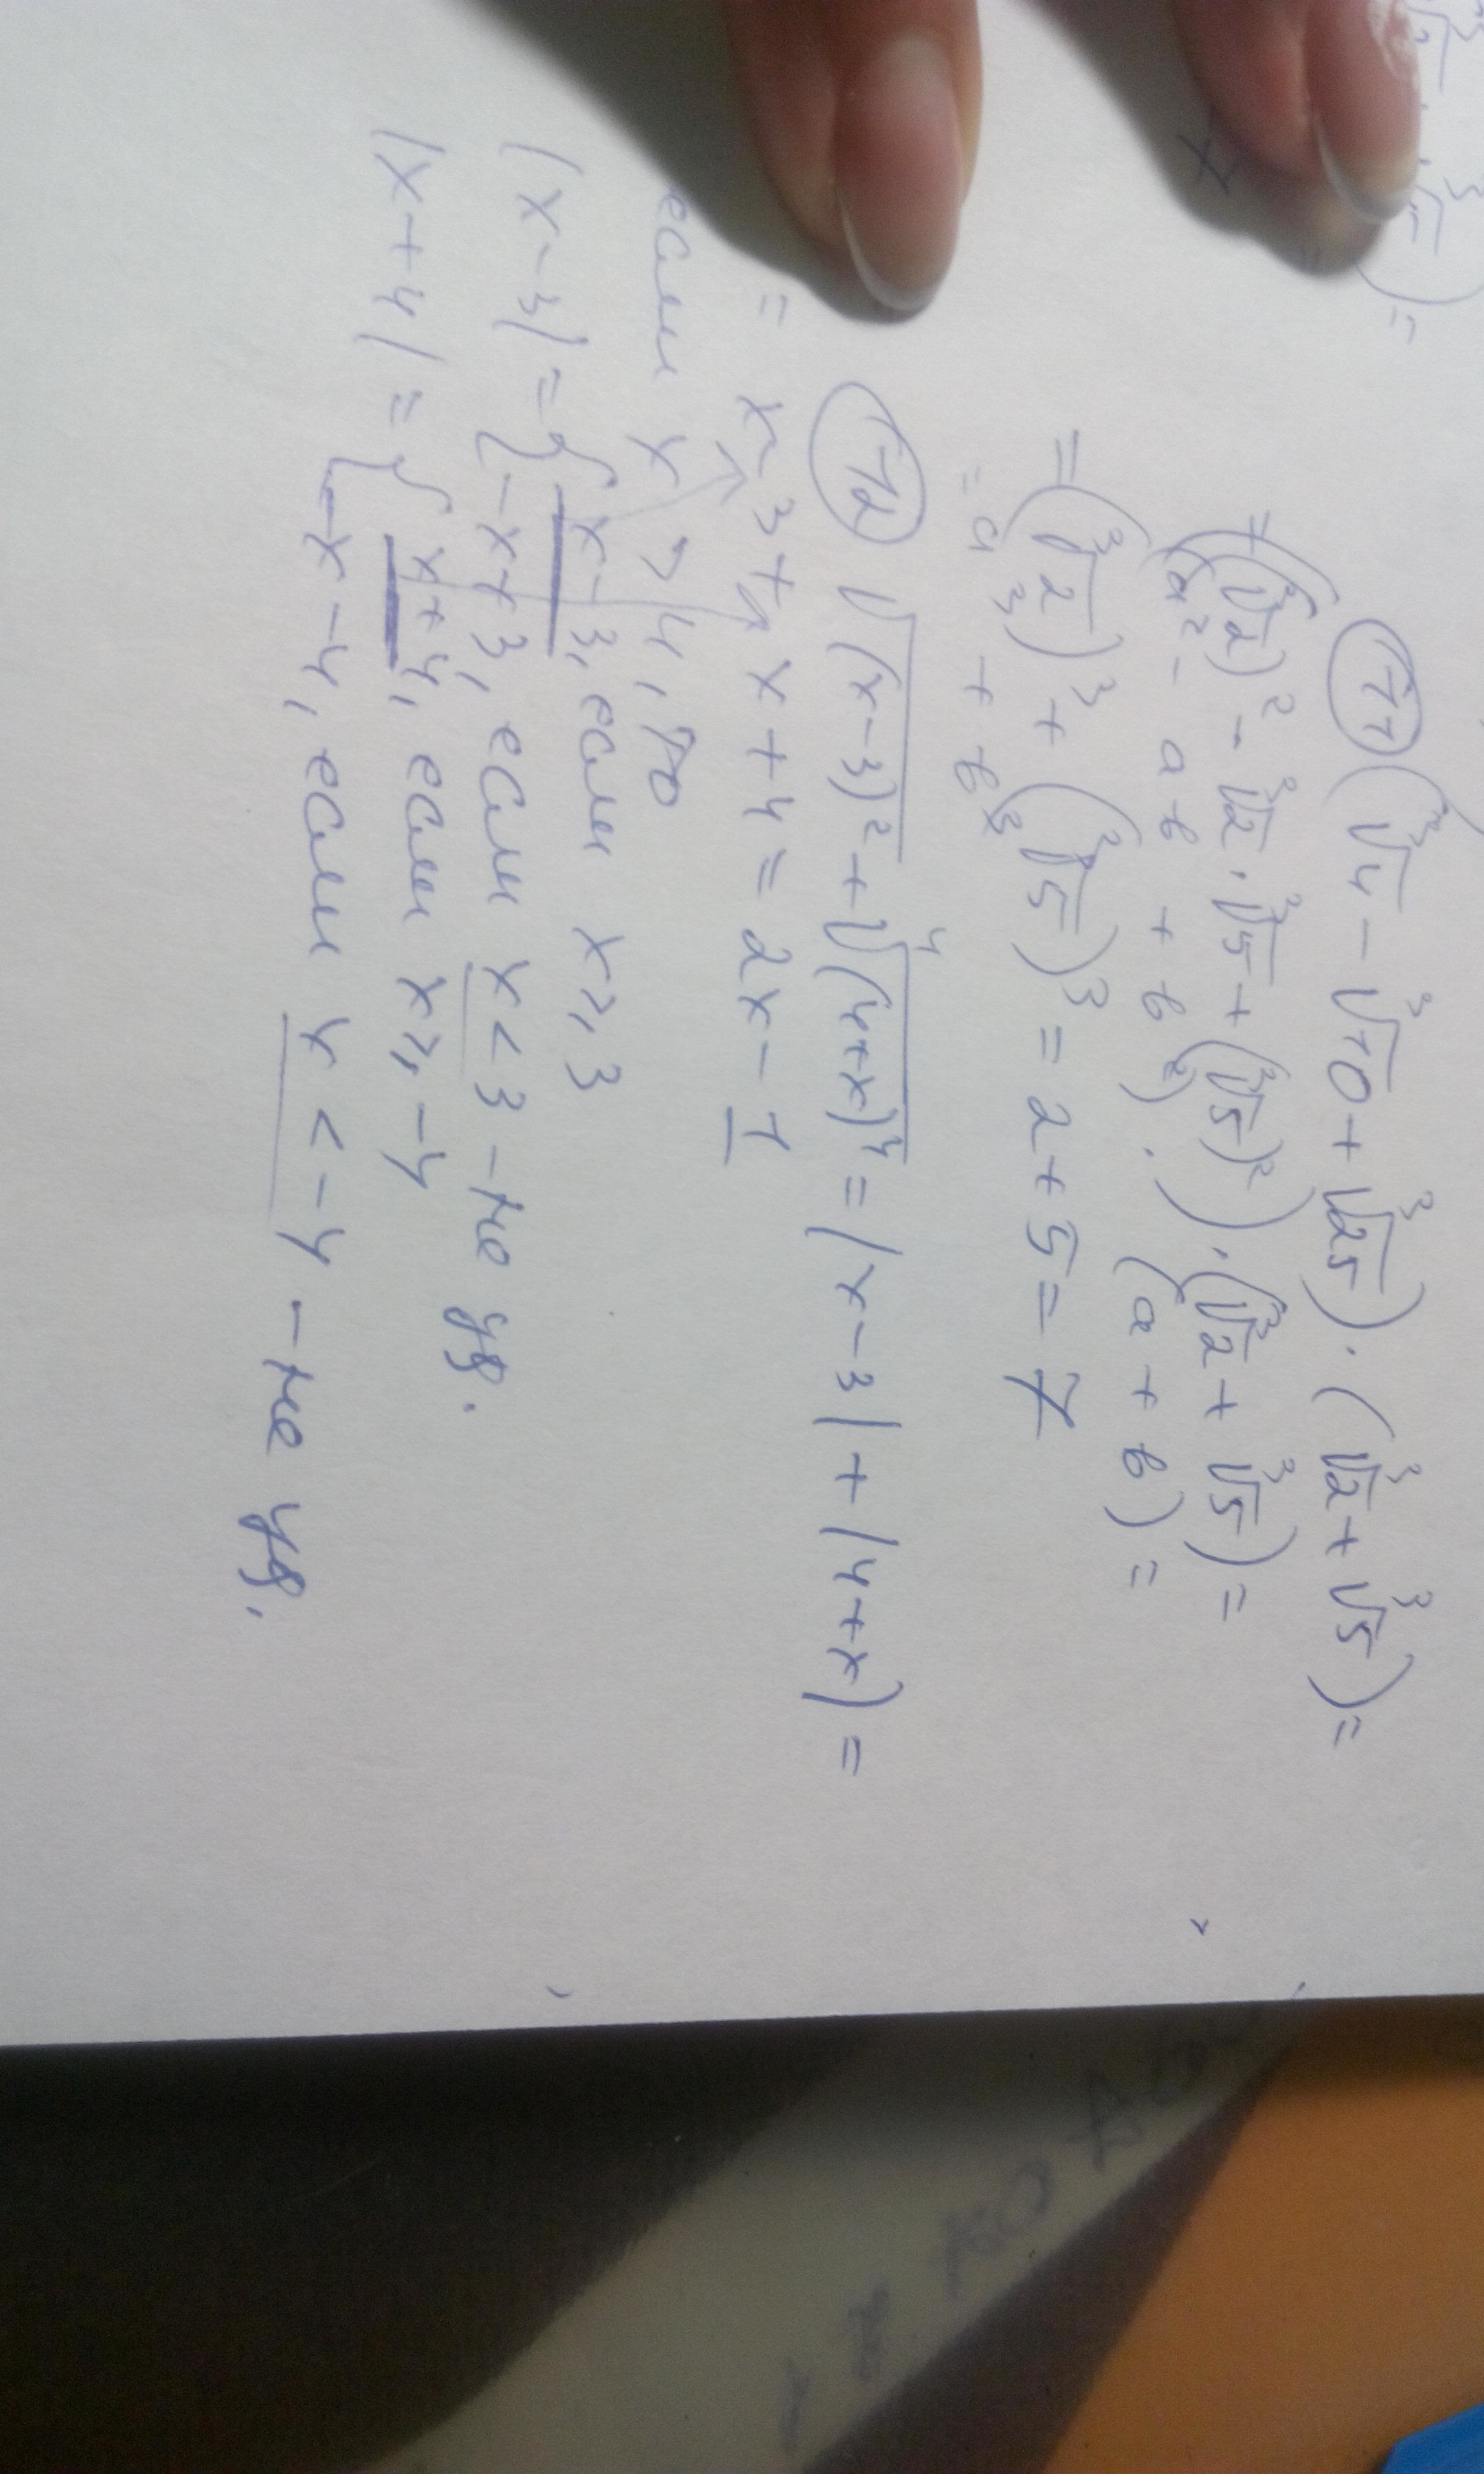 ⑪ (∛4 − ∛10 + ∛25) · (∛2 + ∛5) =
= ((∛2)² − ∛2 · ∛5 + (∛5)²) · (∛2 + ∛5) =
(a² − a в + в²) · (a + в) =
= (∛2)³ + (∛5)³ = 2 + 5 = 7
= a³ + в³
⑫ √(x−3)² + ∜(4+x)⁴ = |x−3| + |4+x| =
= x−3 + x+4 = 2x − 1
если x > 4, то
|x−3| = { x−3, если x ≥ 3
−x+3, если x < 3 − не уд.
|x+4| = { x+4, если x ≥ −4
−x−4, если x < −4 − не уд.